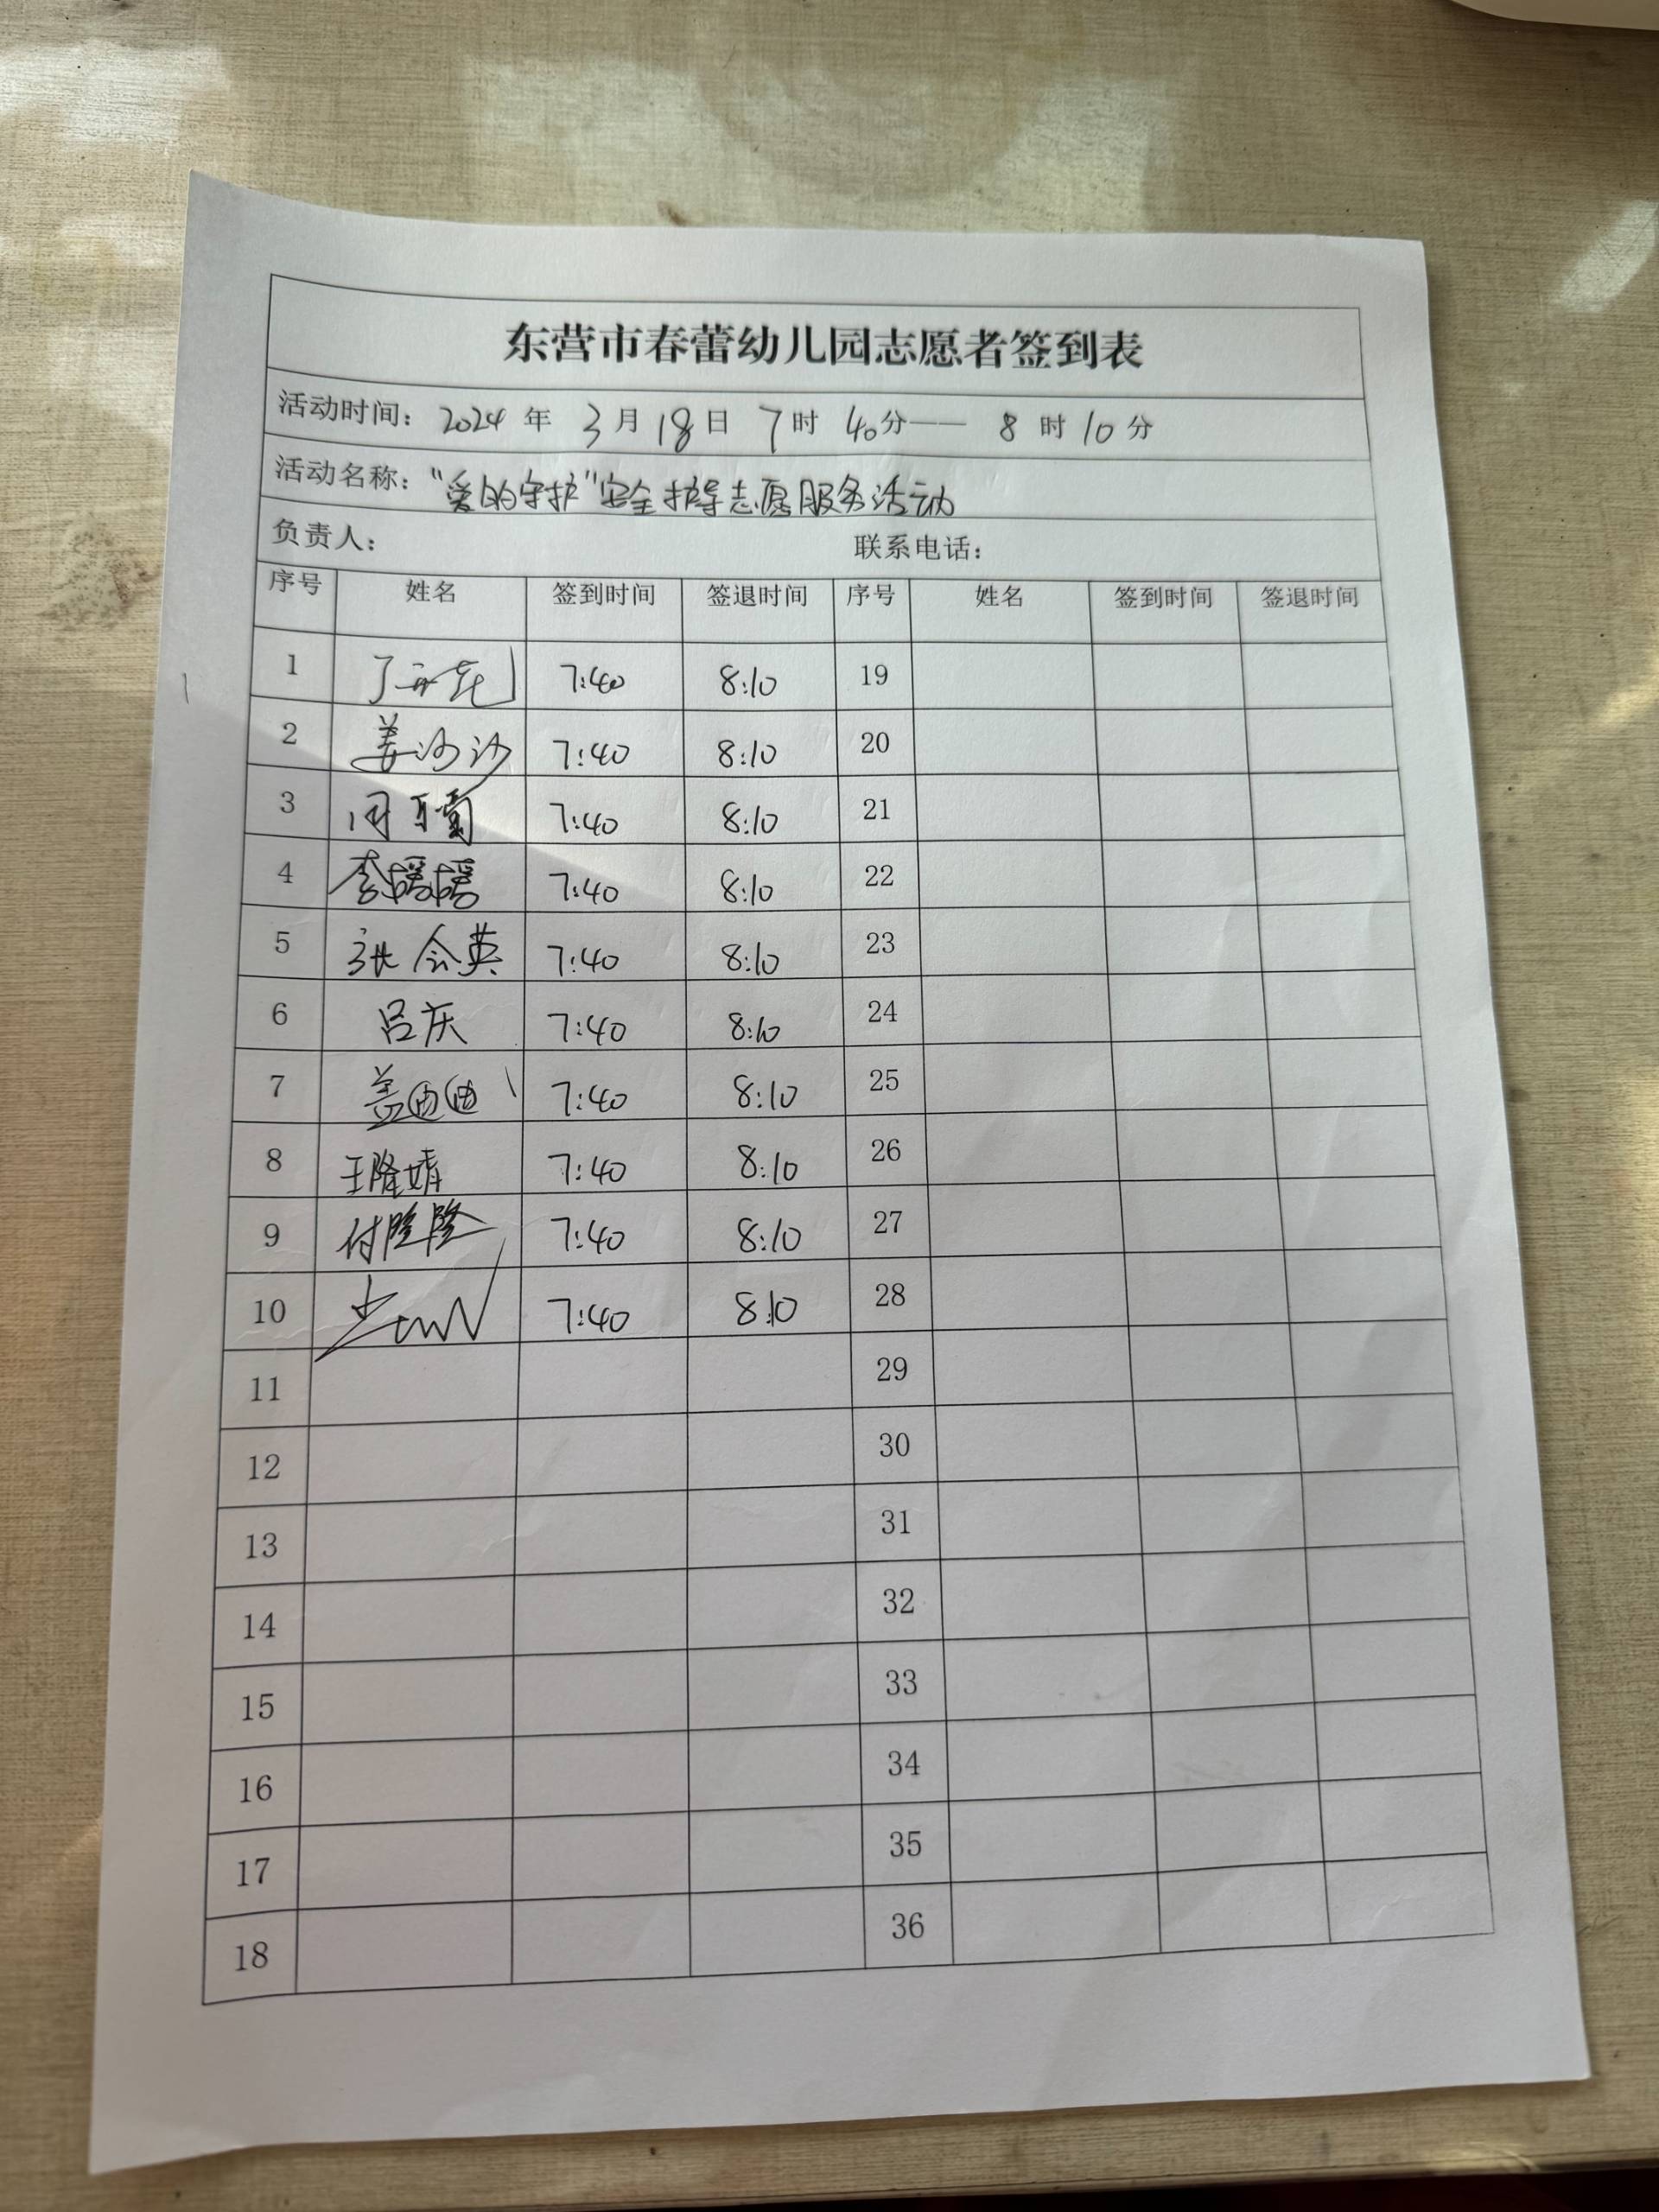 东营市春蕾幼儿园志愿者签到表
活动时间：2024 年 3月 18日 7时 40分—— 8 时 10 分
活动名称："爱的守护"安全护导志愿服务活动
负责人： 联系电话：
序号 姓名 签到时间 签退时间 序号 姓名 签到时间 签退时间
1 7:40 8:10 19
2 姜沙沙 7:40 8:10 20
3 周 7:40 8:10 21
4 李媛媛 7:40 8:10 22
5 张会英 7:40 8:10 23
6 吕庆 7:40 8:10 24
7 盖迪迪 7:40 8:10 25
8 王隆婧 7:40 8:10 26
9 付隆隆 7:40 8:10 27
10 7:40 8:10 28
11 29
12 30
13 31
14 32
15 33
16 34
17 35
18 36